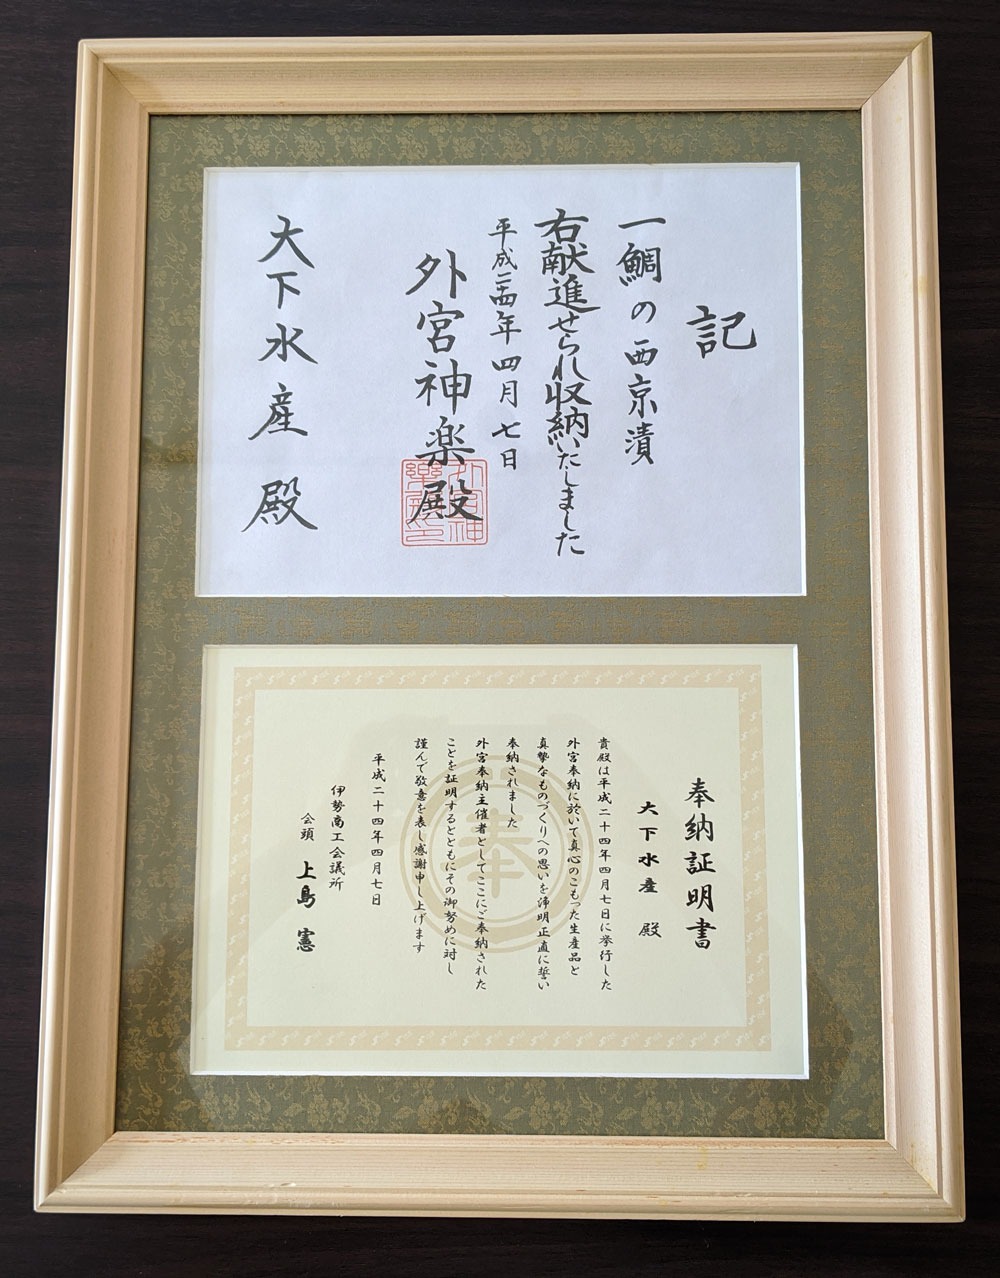 記
一 鯛の西京漬
右献進せられ収納いたしました
平成二十四年四月七日
外宮神楽殿
大下水産殿
奉納証明書
大下水産 殿
貴殿は平成二十四年四月七日に挙行した
外宮奉納に於いて真心のこもった生産品と
真摯なものづくりへの思いを浄明正直に誓い
奉納されました
外宮奉納主催者としてここにご奉納された
ことを証明するとともにその御努めに対し
謹んで敬意を表し感謝申し上げます
平成二十四年四月七日
伊勢商工会議所
会頭 上島 憲
奉